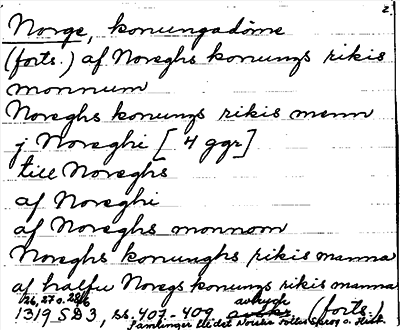 2.
Norge, konungadöme
(forts.) af Noreghs konungs rikis
monnum
Noreghs konungs rikis menn
j Noreghi [4 ggr]
till Noreghs
af Noreghi
af Noreghs monnom
Noreghs konunghs rikis manna
af halfu Noregs konungs rikis manna
26, 27 o. 28/6 avtryck
1319 SD 3, ss. 407-409, (forts.)
Samlinger til det Norske Folks Sprog o. Hist.